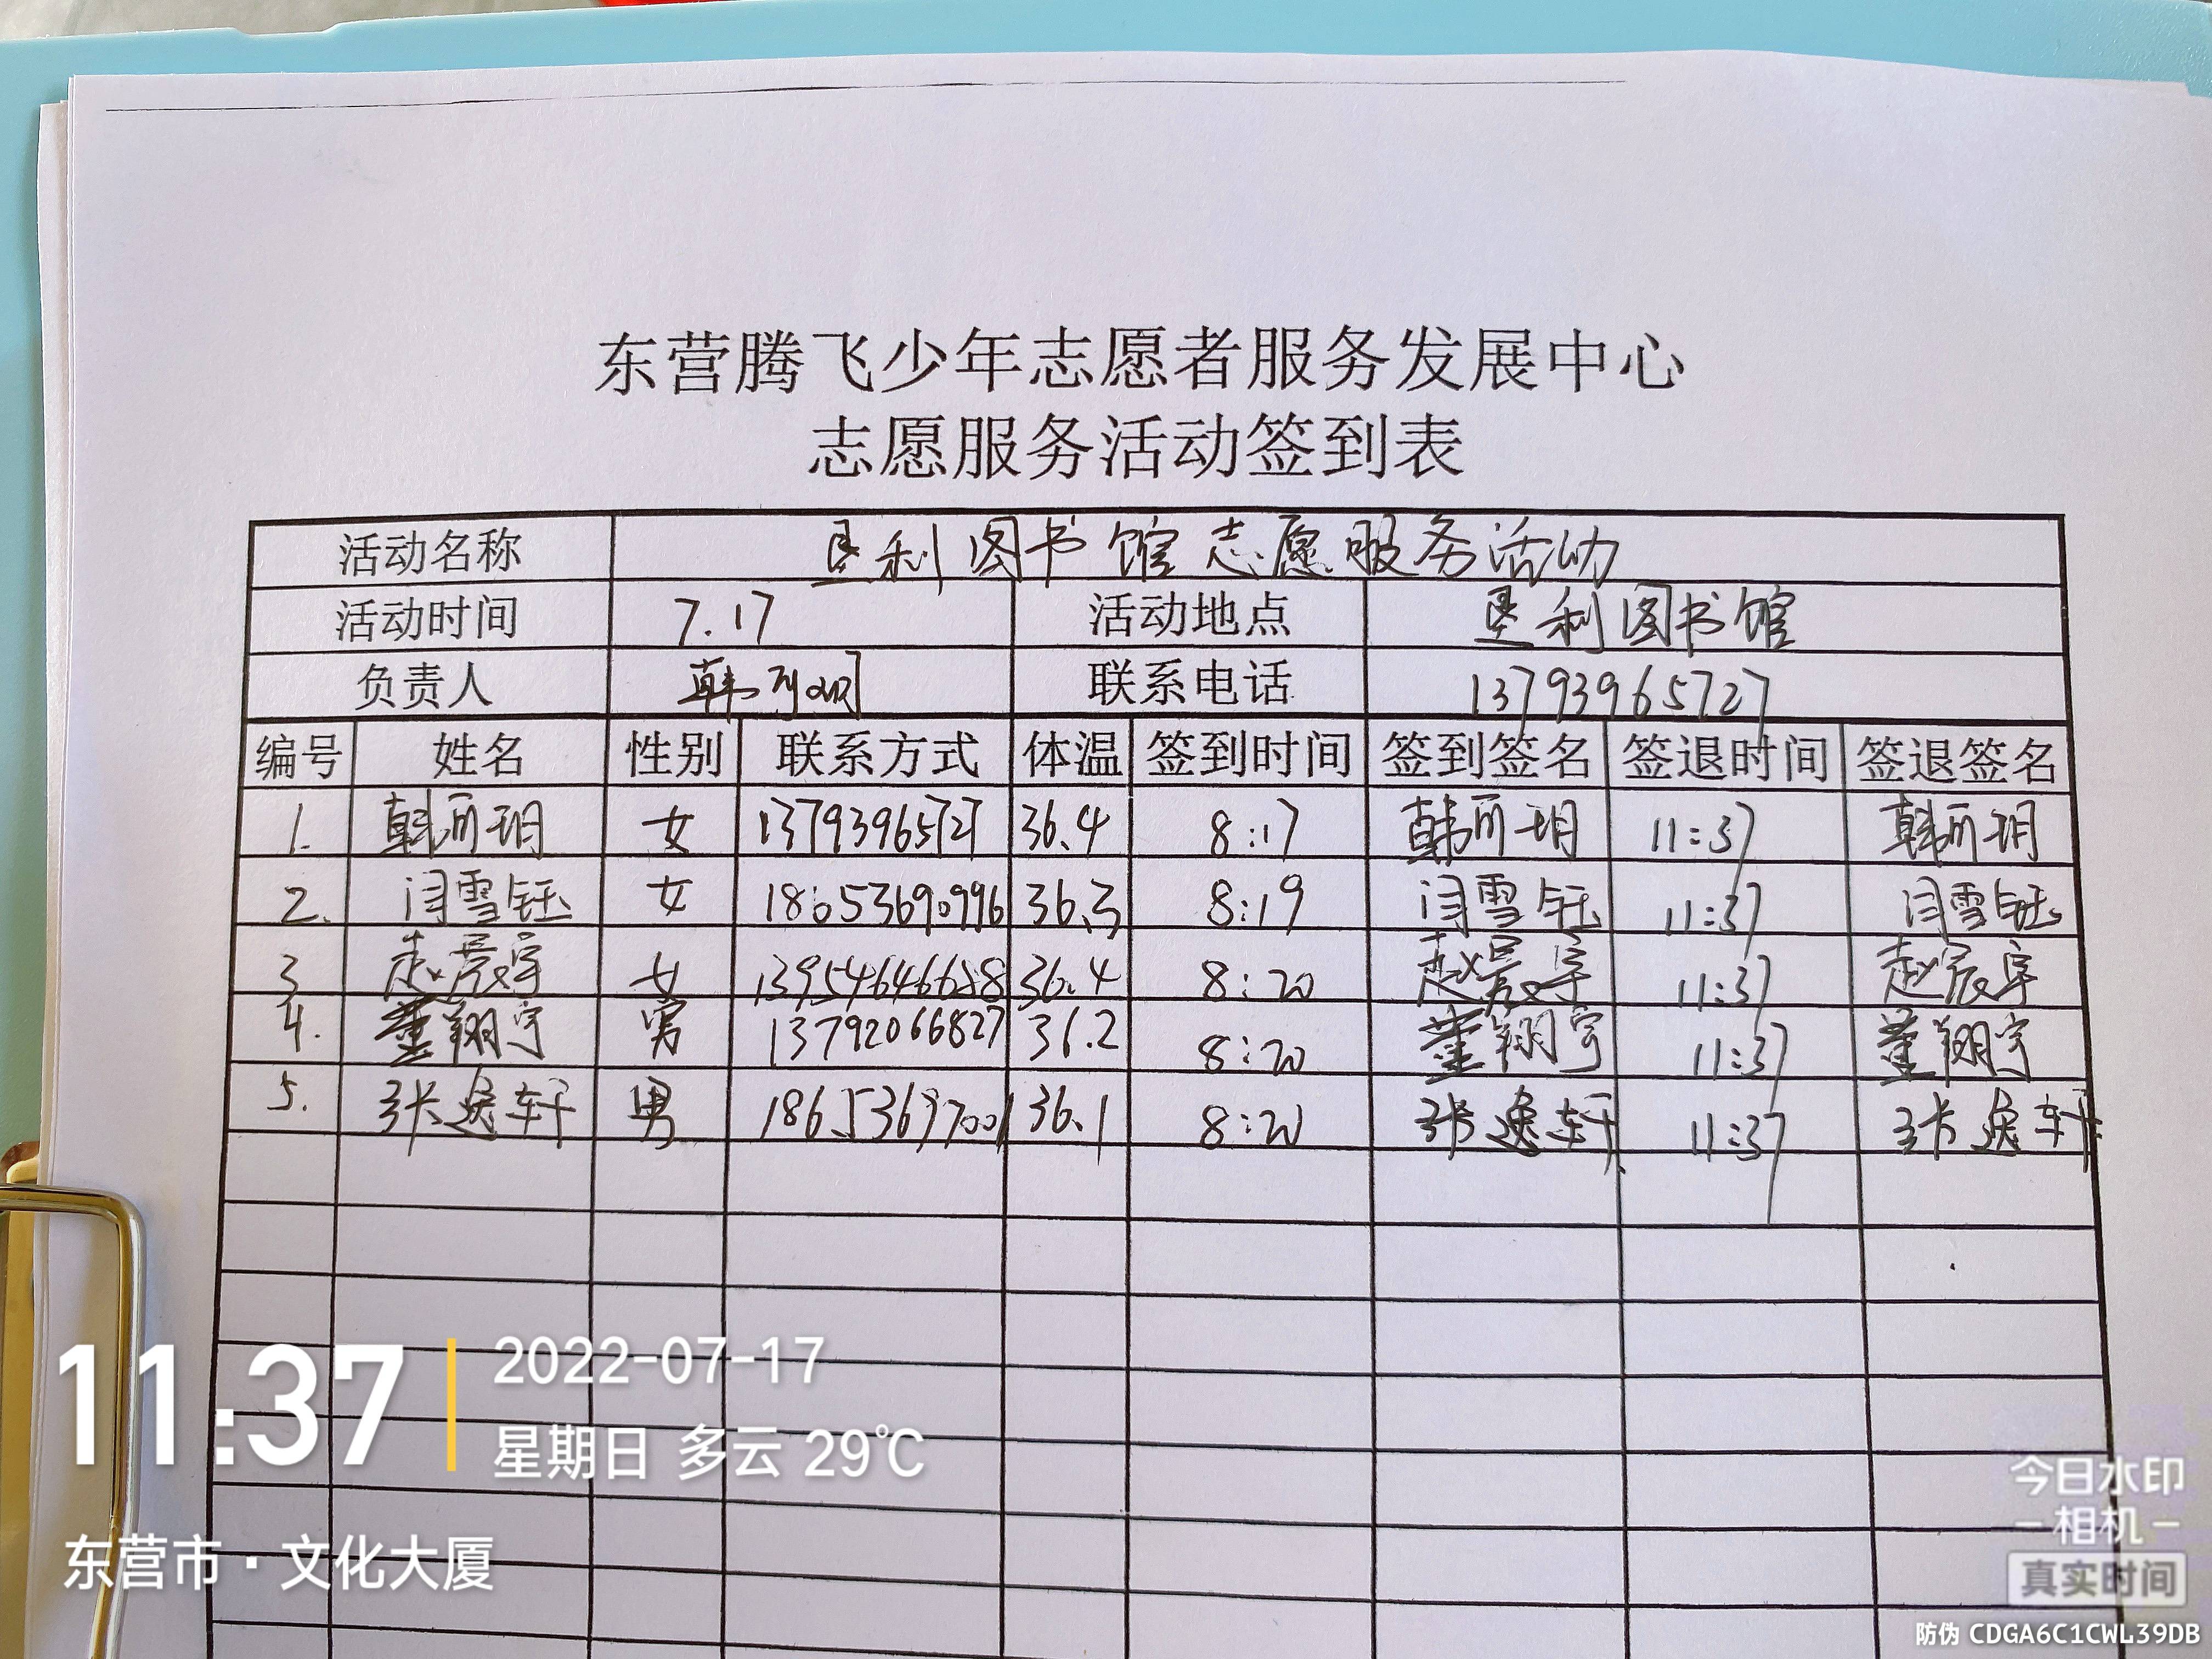 东营腾飞少年志愿者服务发展中心
志愿服务活动签到表
活动名称 垦利图书馆志愿服务活动
活动时间 7.17 活动地点 垦利图书馆
负责人 韩 联系电话 13793965727
编号 姓名 性别 联系方式 体温 签到时间 签到签名 签退时间 签退签名
1. 韩所玥 女 13793965727 36.4 8:17 韩所玥 11:37 韩所玥
2. 闫雪钰 女 36.3 8:19 闫雪钰 11:37 闫雪钰
3 赵宸宇 女 36.4 8:20 赵宸宇 11:37 赵宸宇
4. 董翔宇 男 13792066827 36.2 8:20 董翔宇 11:37 董翔宇
5. 张逸轩 男 36.1 8:20 张逸轩 11:37 张逸轩
11:37 2022-07-17
星期日 多云 29℃
东营市·文化大厦
今日水印
-相机-
真实时间
防伪 CDGA6C1CWL39DB